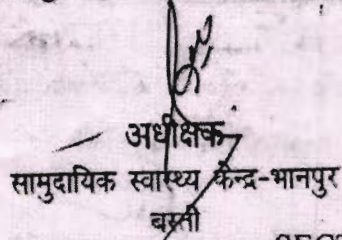 अधीक्षक
सामुदायिक स्वास्थ्य केन्द्र-भानपुर
बस्ती
SECT